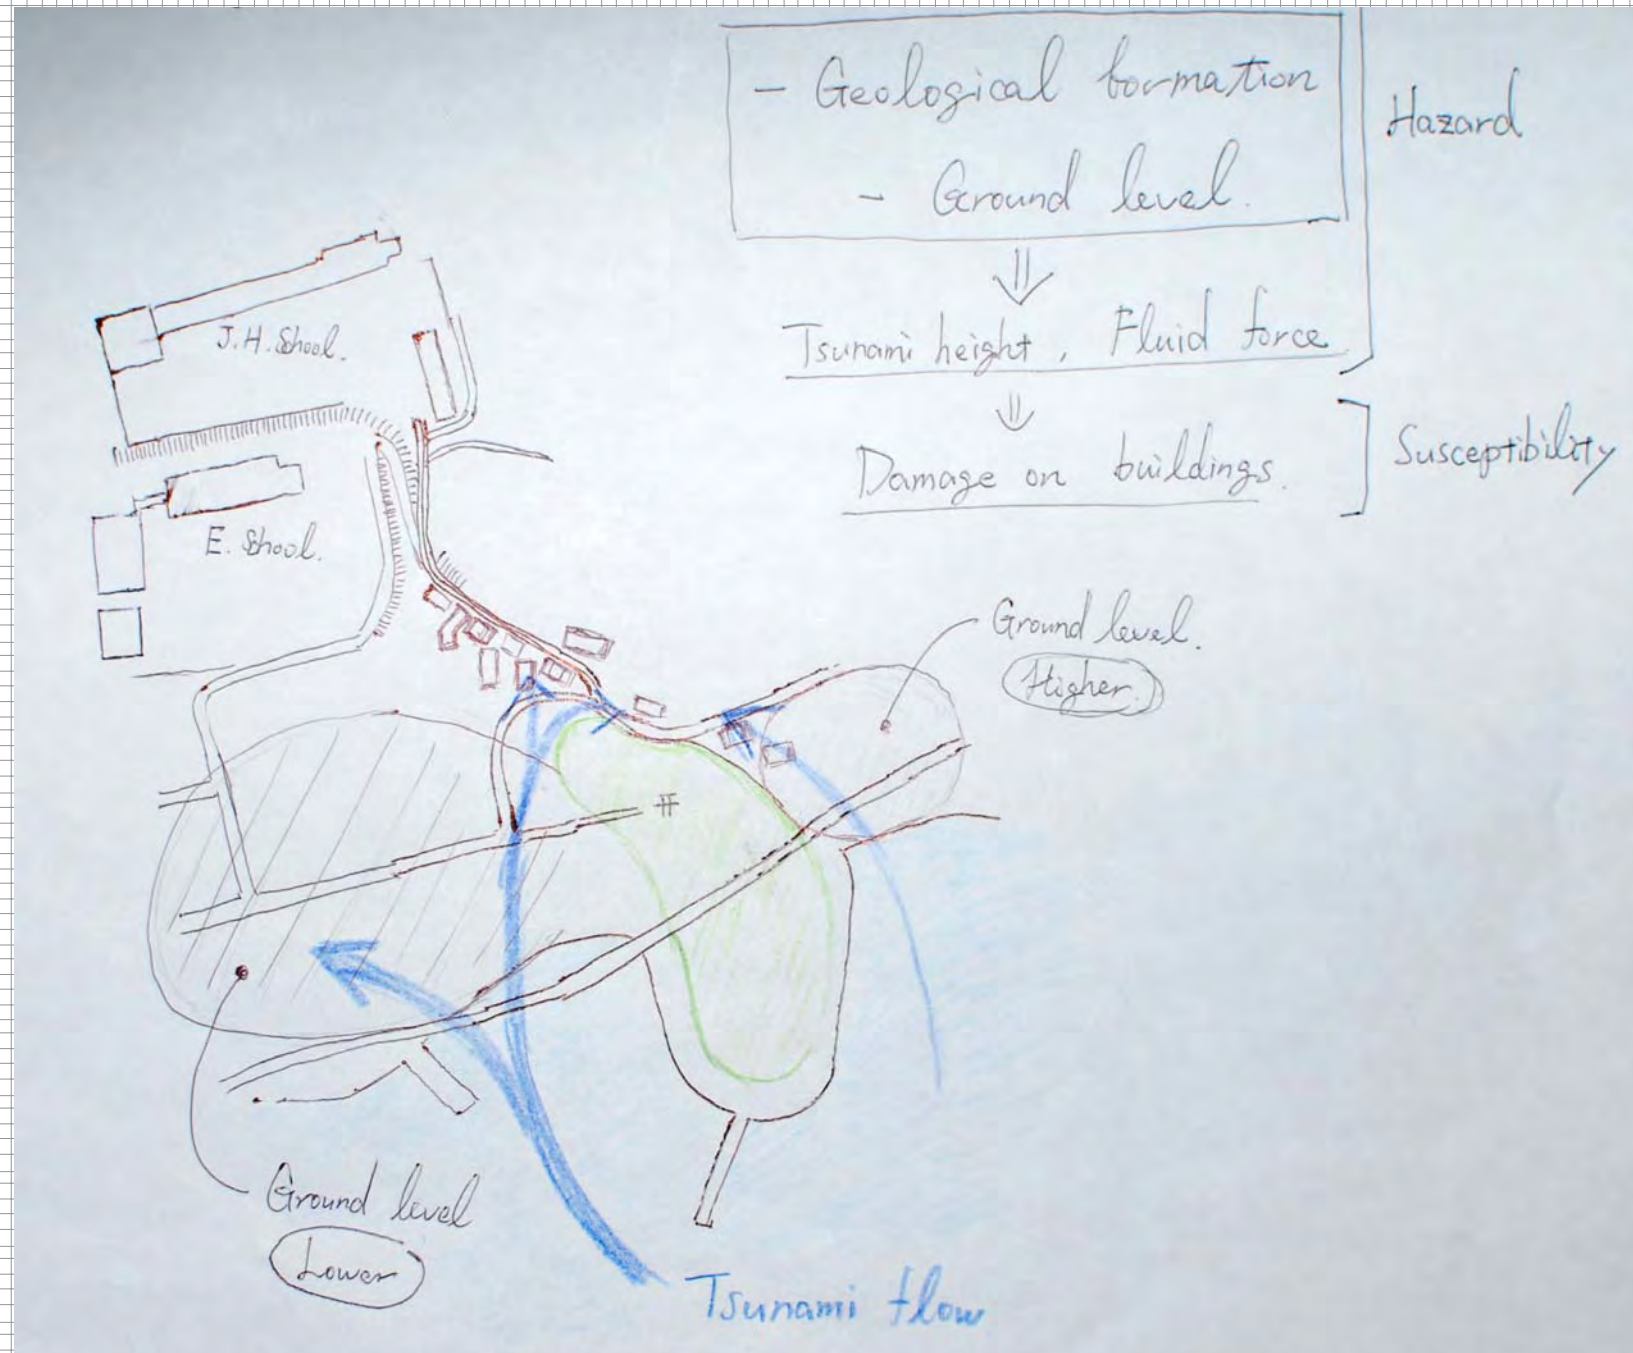 - Geological formation
- Ground level.
Hazard
⇓
Tsunami height, Fluid force
⇓
Damage on buildings.
Susceptibility
J.H. School.
E. School.
Ground level.
Higher.
Ground level
Lower
Tsunami flow